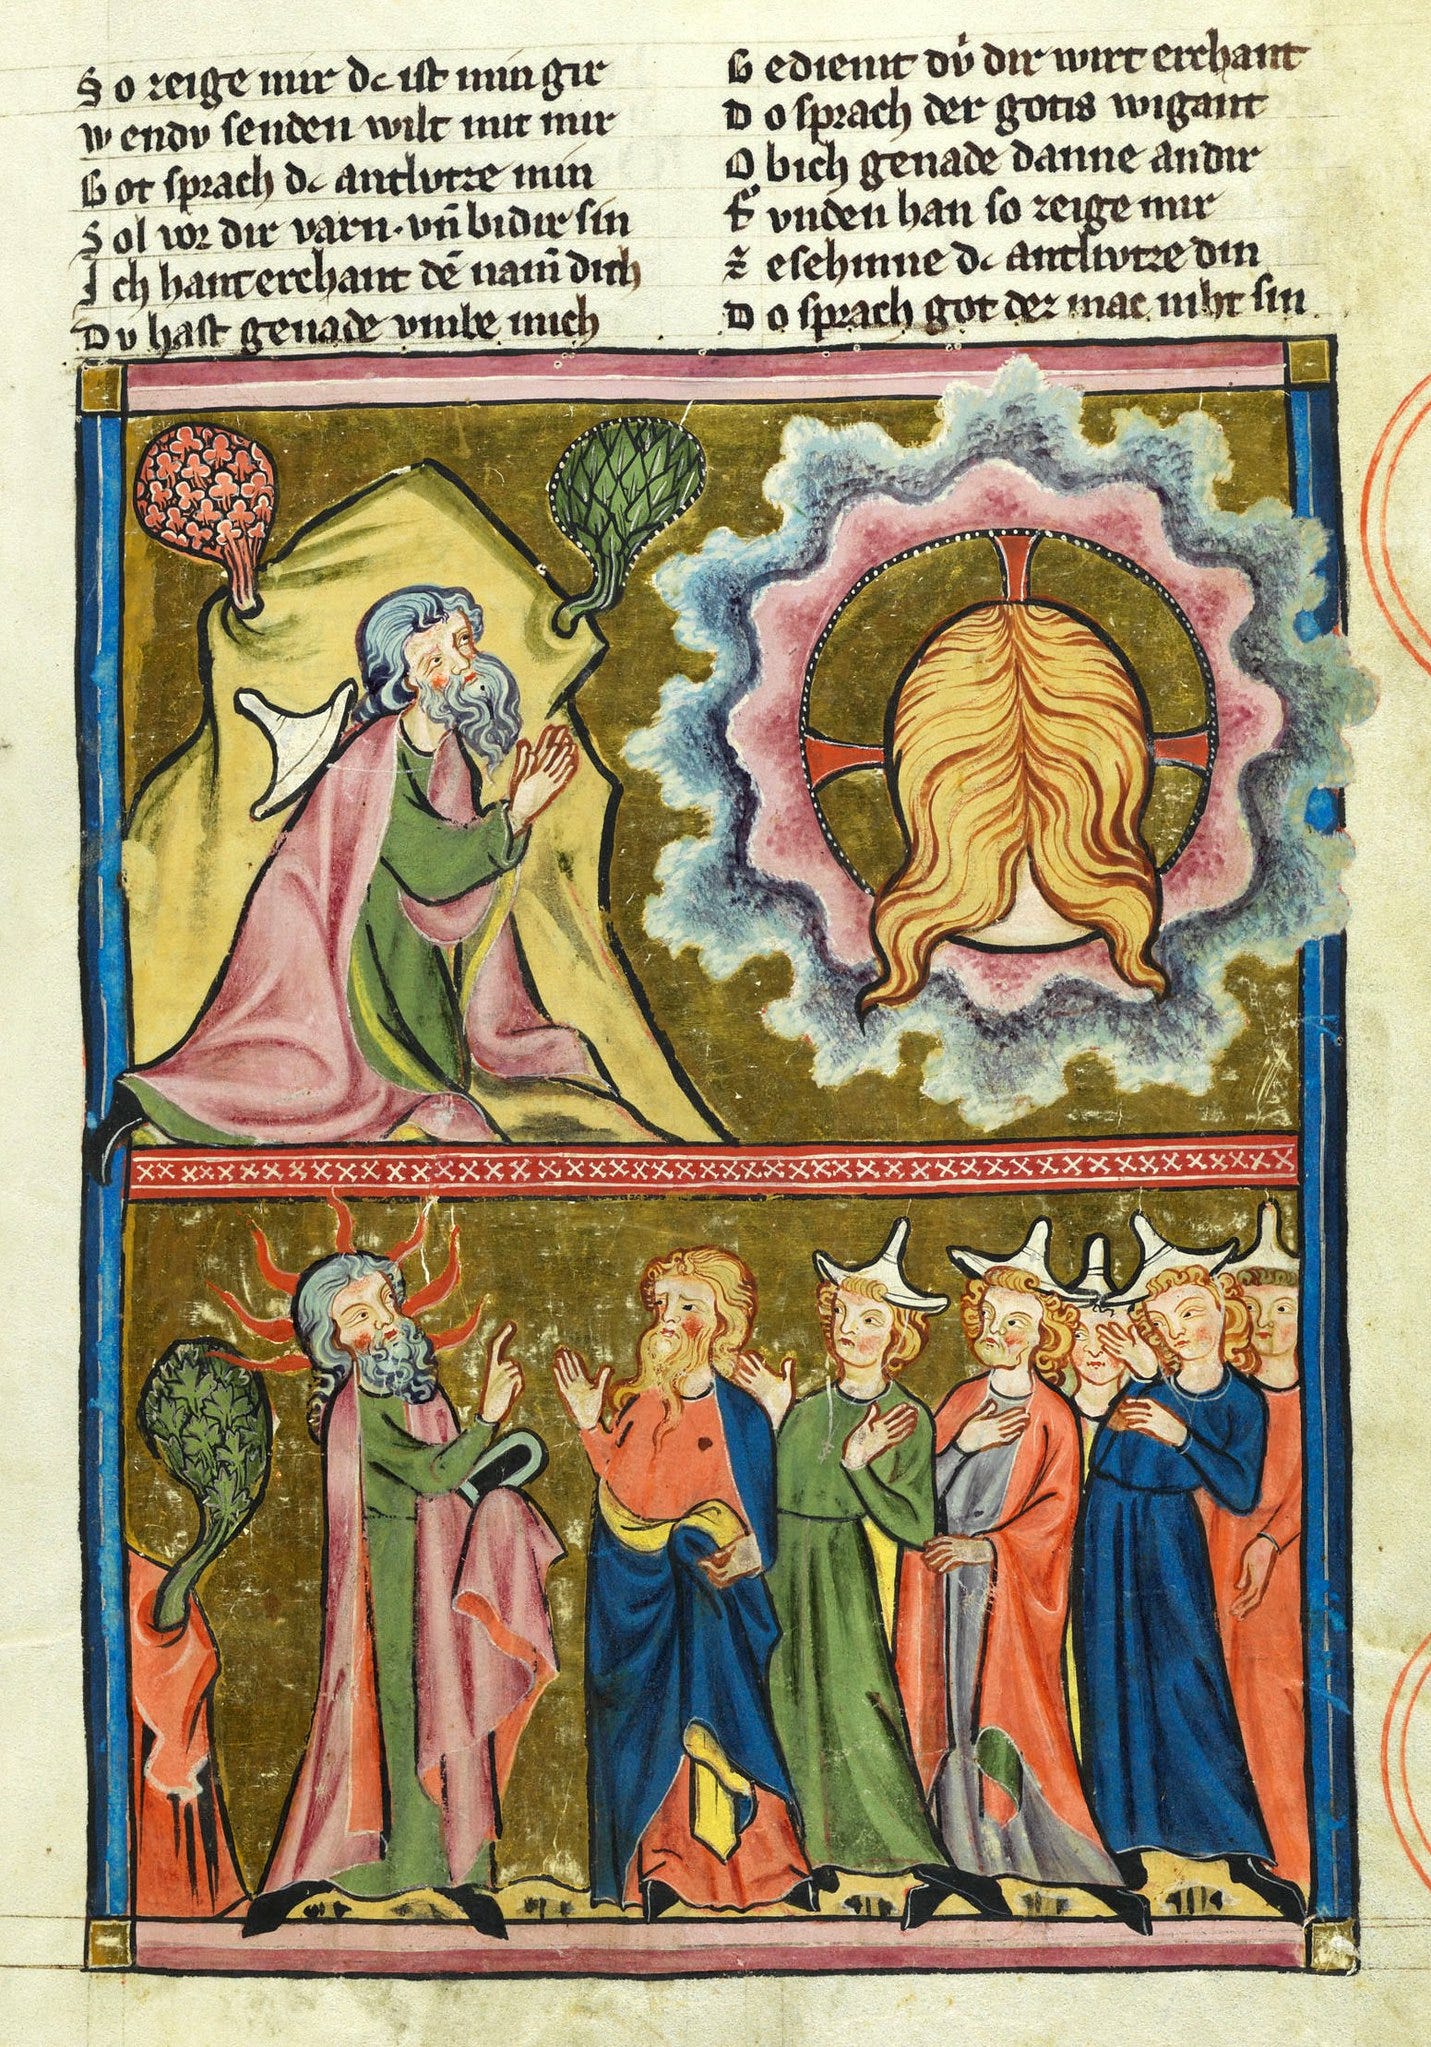 So zeige mir dc ist min gir
Wendv senden wilt mit mir
Got sprach dc antlvtze min
Sol vor dir varn · vn̄ bi dir sin
Ich han erchant dē namī dich
Dv hast genade vmbe mich
Gedienit dv̊ dir wirt erchant
Do sprach der gotis wigant
Ob ich genade danne an dir
Fvnden han so zeige mir
Ze sehinne dc antlvtze din
Do sprach got dez mac niht sin